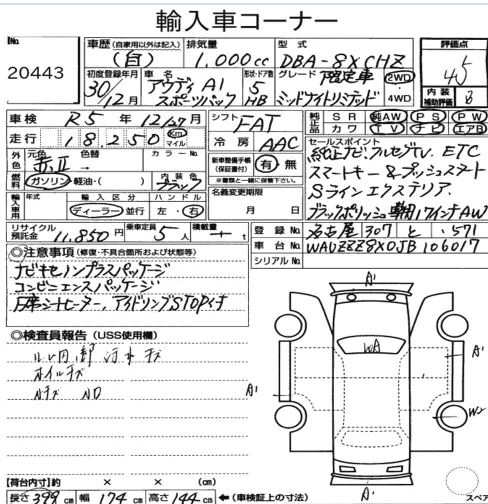 輸入車コーナー
No.
20443
車歴 (自家用以外は記入)
(自)
排気量
1,000cc
型式
DBA-8XCHZ
評価点
4.5
内装補助評価 B
初度登録年月
30/12月
車名
アウディ A1
スポーツバック
形状・ドア数
5
HB
グレード 限定車
ミッドナイトリミテッド
2WD
4WD
車検 R5年12/27月
走行 18,250 km マイル
シフト FAT
冷房 AAC
純正品 純AW PS PW
SR カワ TV ナビ エアB
セールスポイント
純正ナビ、フルセグTV. ETC
スマートキー&プッシュスタート
Sラインエクステリア.
ブラックポリッシュ専用17インチAW
外色 元色 色替 カラーNo.
赤II →
燃料 ガソリン・軽油・( )
内装色 ブラック
新車整備手帳 (保証書付) 有 無
※書類と一緒に保管して下さい。
輸入車用 輸入区分 ハンドル
ディーラー 並行 左・右
名義変更期限
月 日
リサイクル預託金 11,850円
乗車定員 5人
積載量 t
登録No. 名古屋 307 と ・571
車台No. WAUZZZ8X0JB106017
シリアルNo.
◎注意事項 (修復・不具合箇所および状態等)
ナビキセノンプラスパッケージ
コンビニエンスパッケージ
F席シートヒーター、アイドリングSTOP
◎検査員報告 (USS使用欄)
ホイルキズ
ND
A1
WA
A1
PS
A1
W2
A1
【荷台内寸】約 × × (cm)
長さ 399 cm 幅 174 cm 高さ 144 cm ←(車検証上の寸法)
スペ